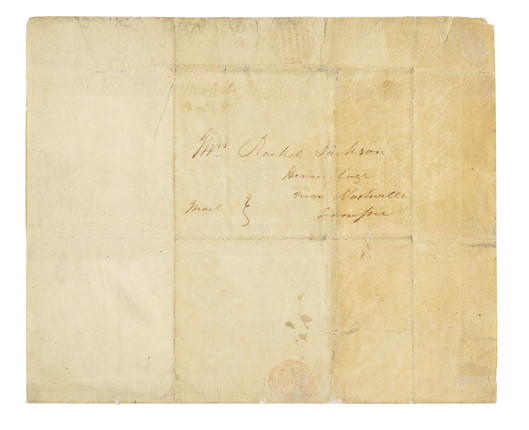 Mobile
Mrs Rachel Jackson
Hermitage
near Nashville
Mail
Tennessee